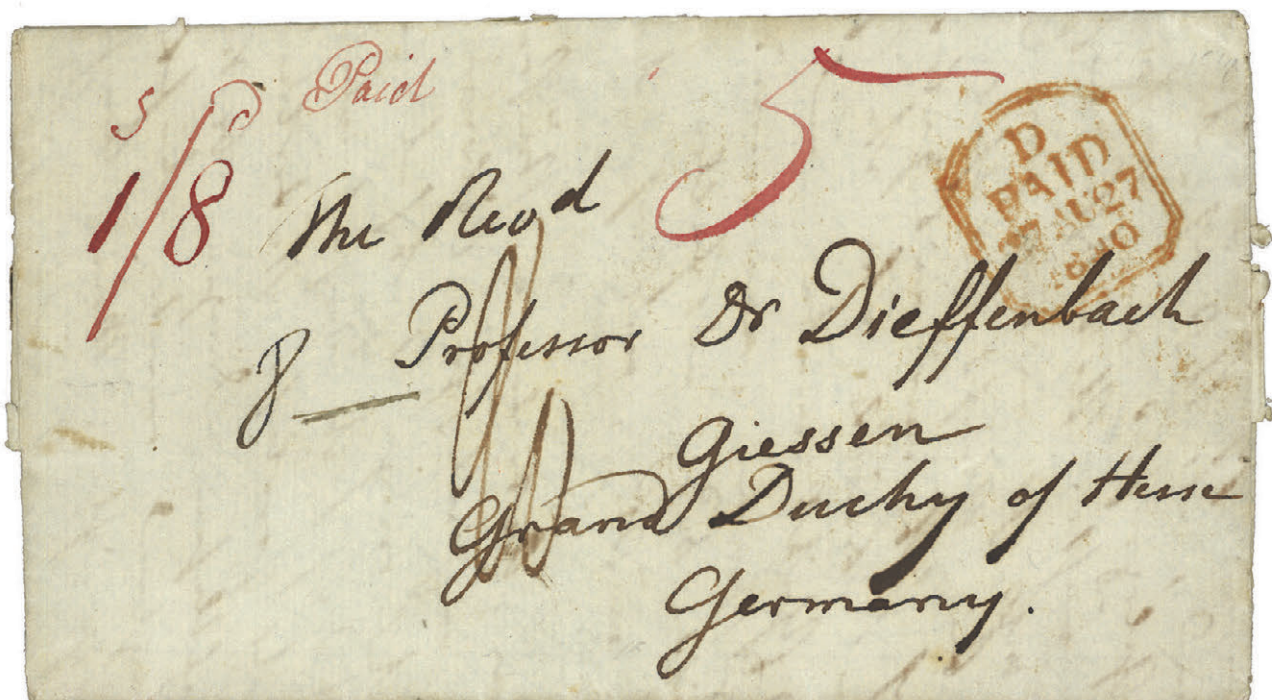 s d Paid
1/8
5
D
PAID
27 AU 27
1840
The Revd
Professor Dr Dieffenbach
Giessen
Grand Duchy of Hesse
Germany.